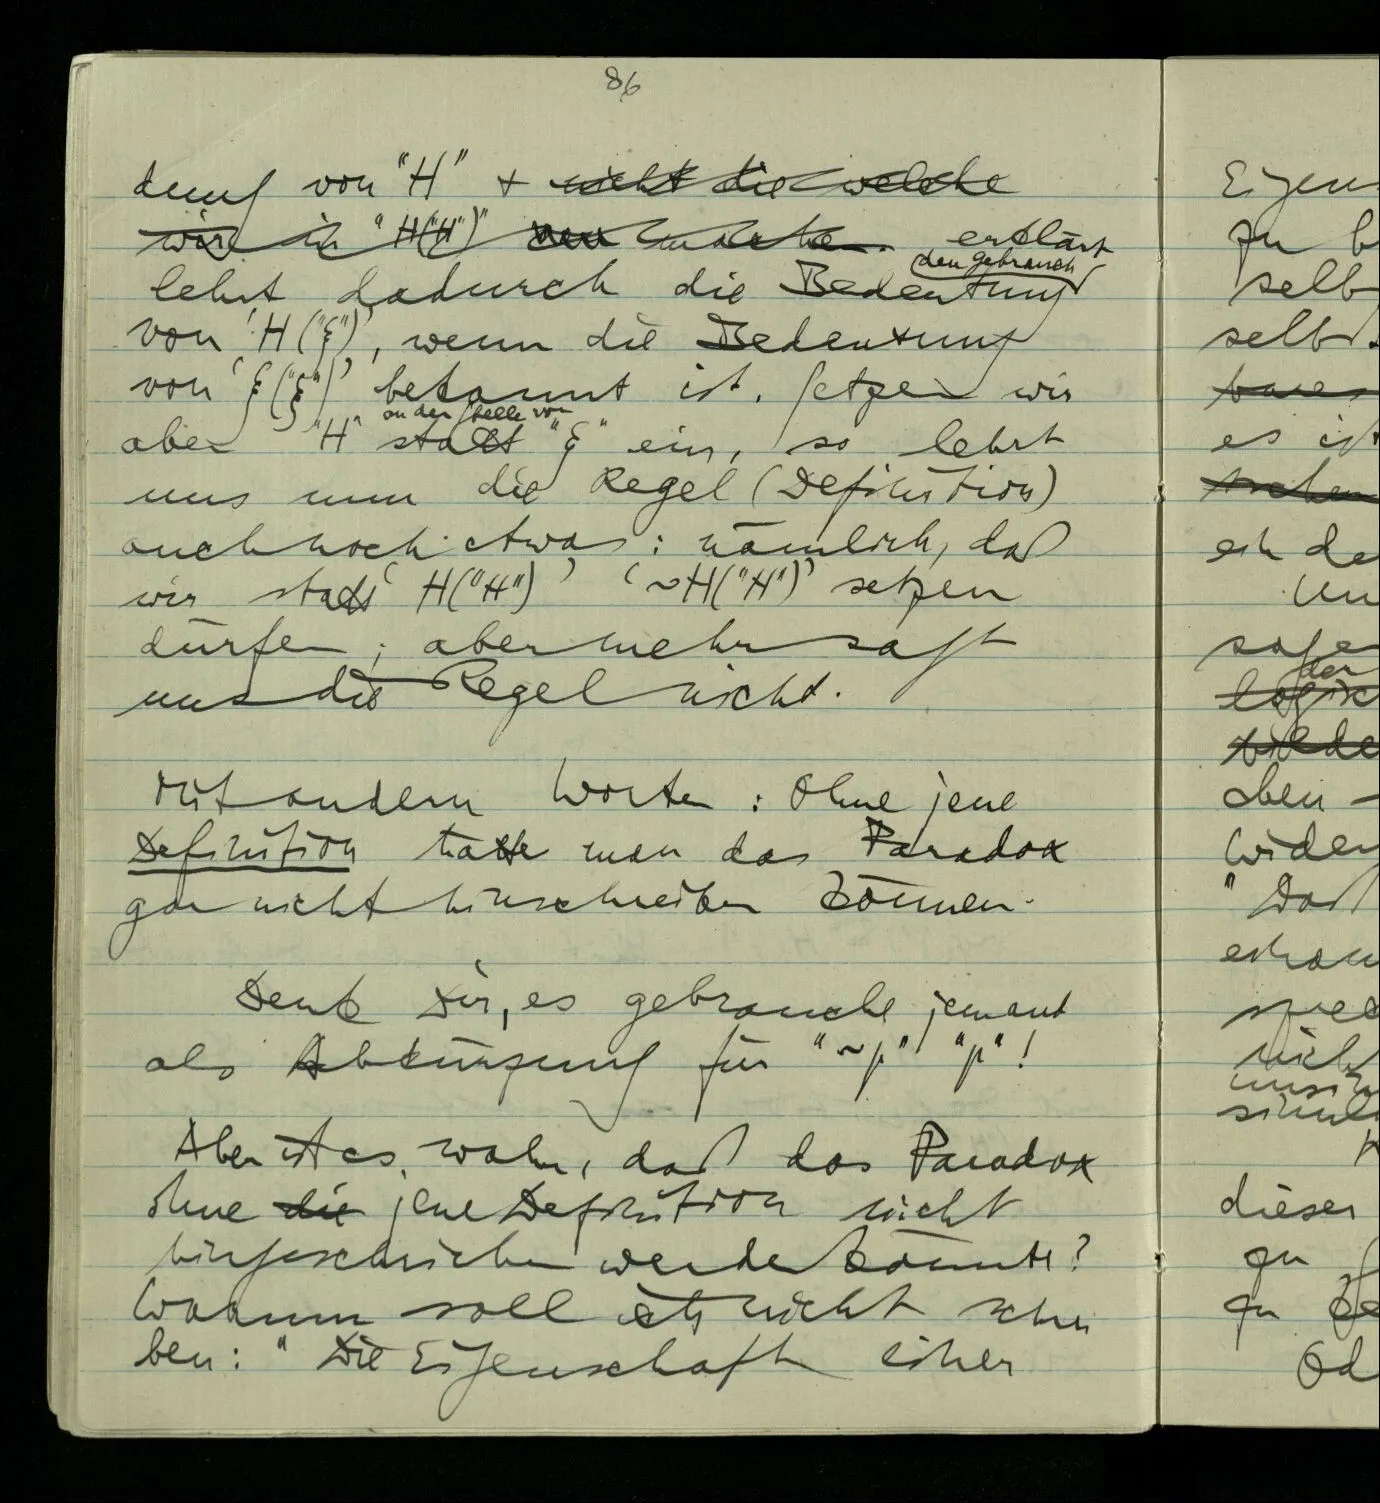 86
dung von "H" + nicht die welche
wir in "H("H")" neu machen. erklärt
den Gebrauch
lehrt dadurch die Bedeutung
von 'H("ξ")', wenn die Bedeutung
von 'ξ("ξ")' bekannt ist. Setzen wir
an der Stelle von
aber "H" statt "ξ" ein, so lehrt
uns nun die Regel (Definition)
auch noch etwas: nämlich, daß
wir statt 'H("H")' '~H("H")' setzen
dürfen; aber mehr sagt
uns die Regel nicht.
Mit andern Worten: Ohne jene
Definition hätte man das Paradox
gar nicht hinschreiben können.
Denk Dir, es gebrauche jemand
als Abkürzung für "~p" "p"!
Aber ist es wahr, daß das Paradox
ohne die jene Definition nicht
hingeschrieben werden könnte?
Warum soll ich nicht schrei
ben: "Die Eigenschaft einer
Eigen
zu b
selb
selbst
es ist
ein de
Un
sage
der
logisc
wiede
oben –
Wider
"Daß
dieser
zu
zu
Od